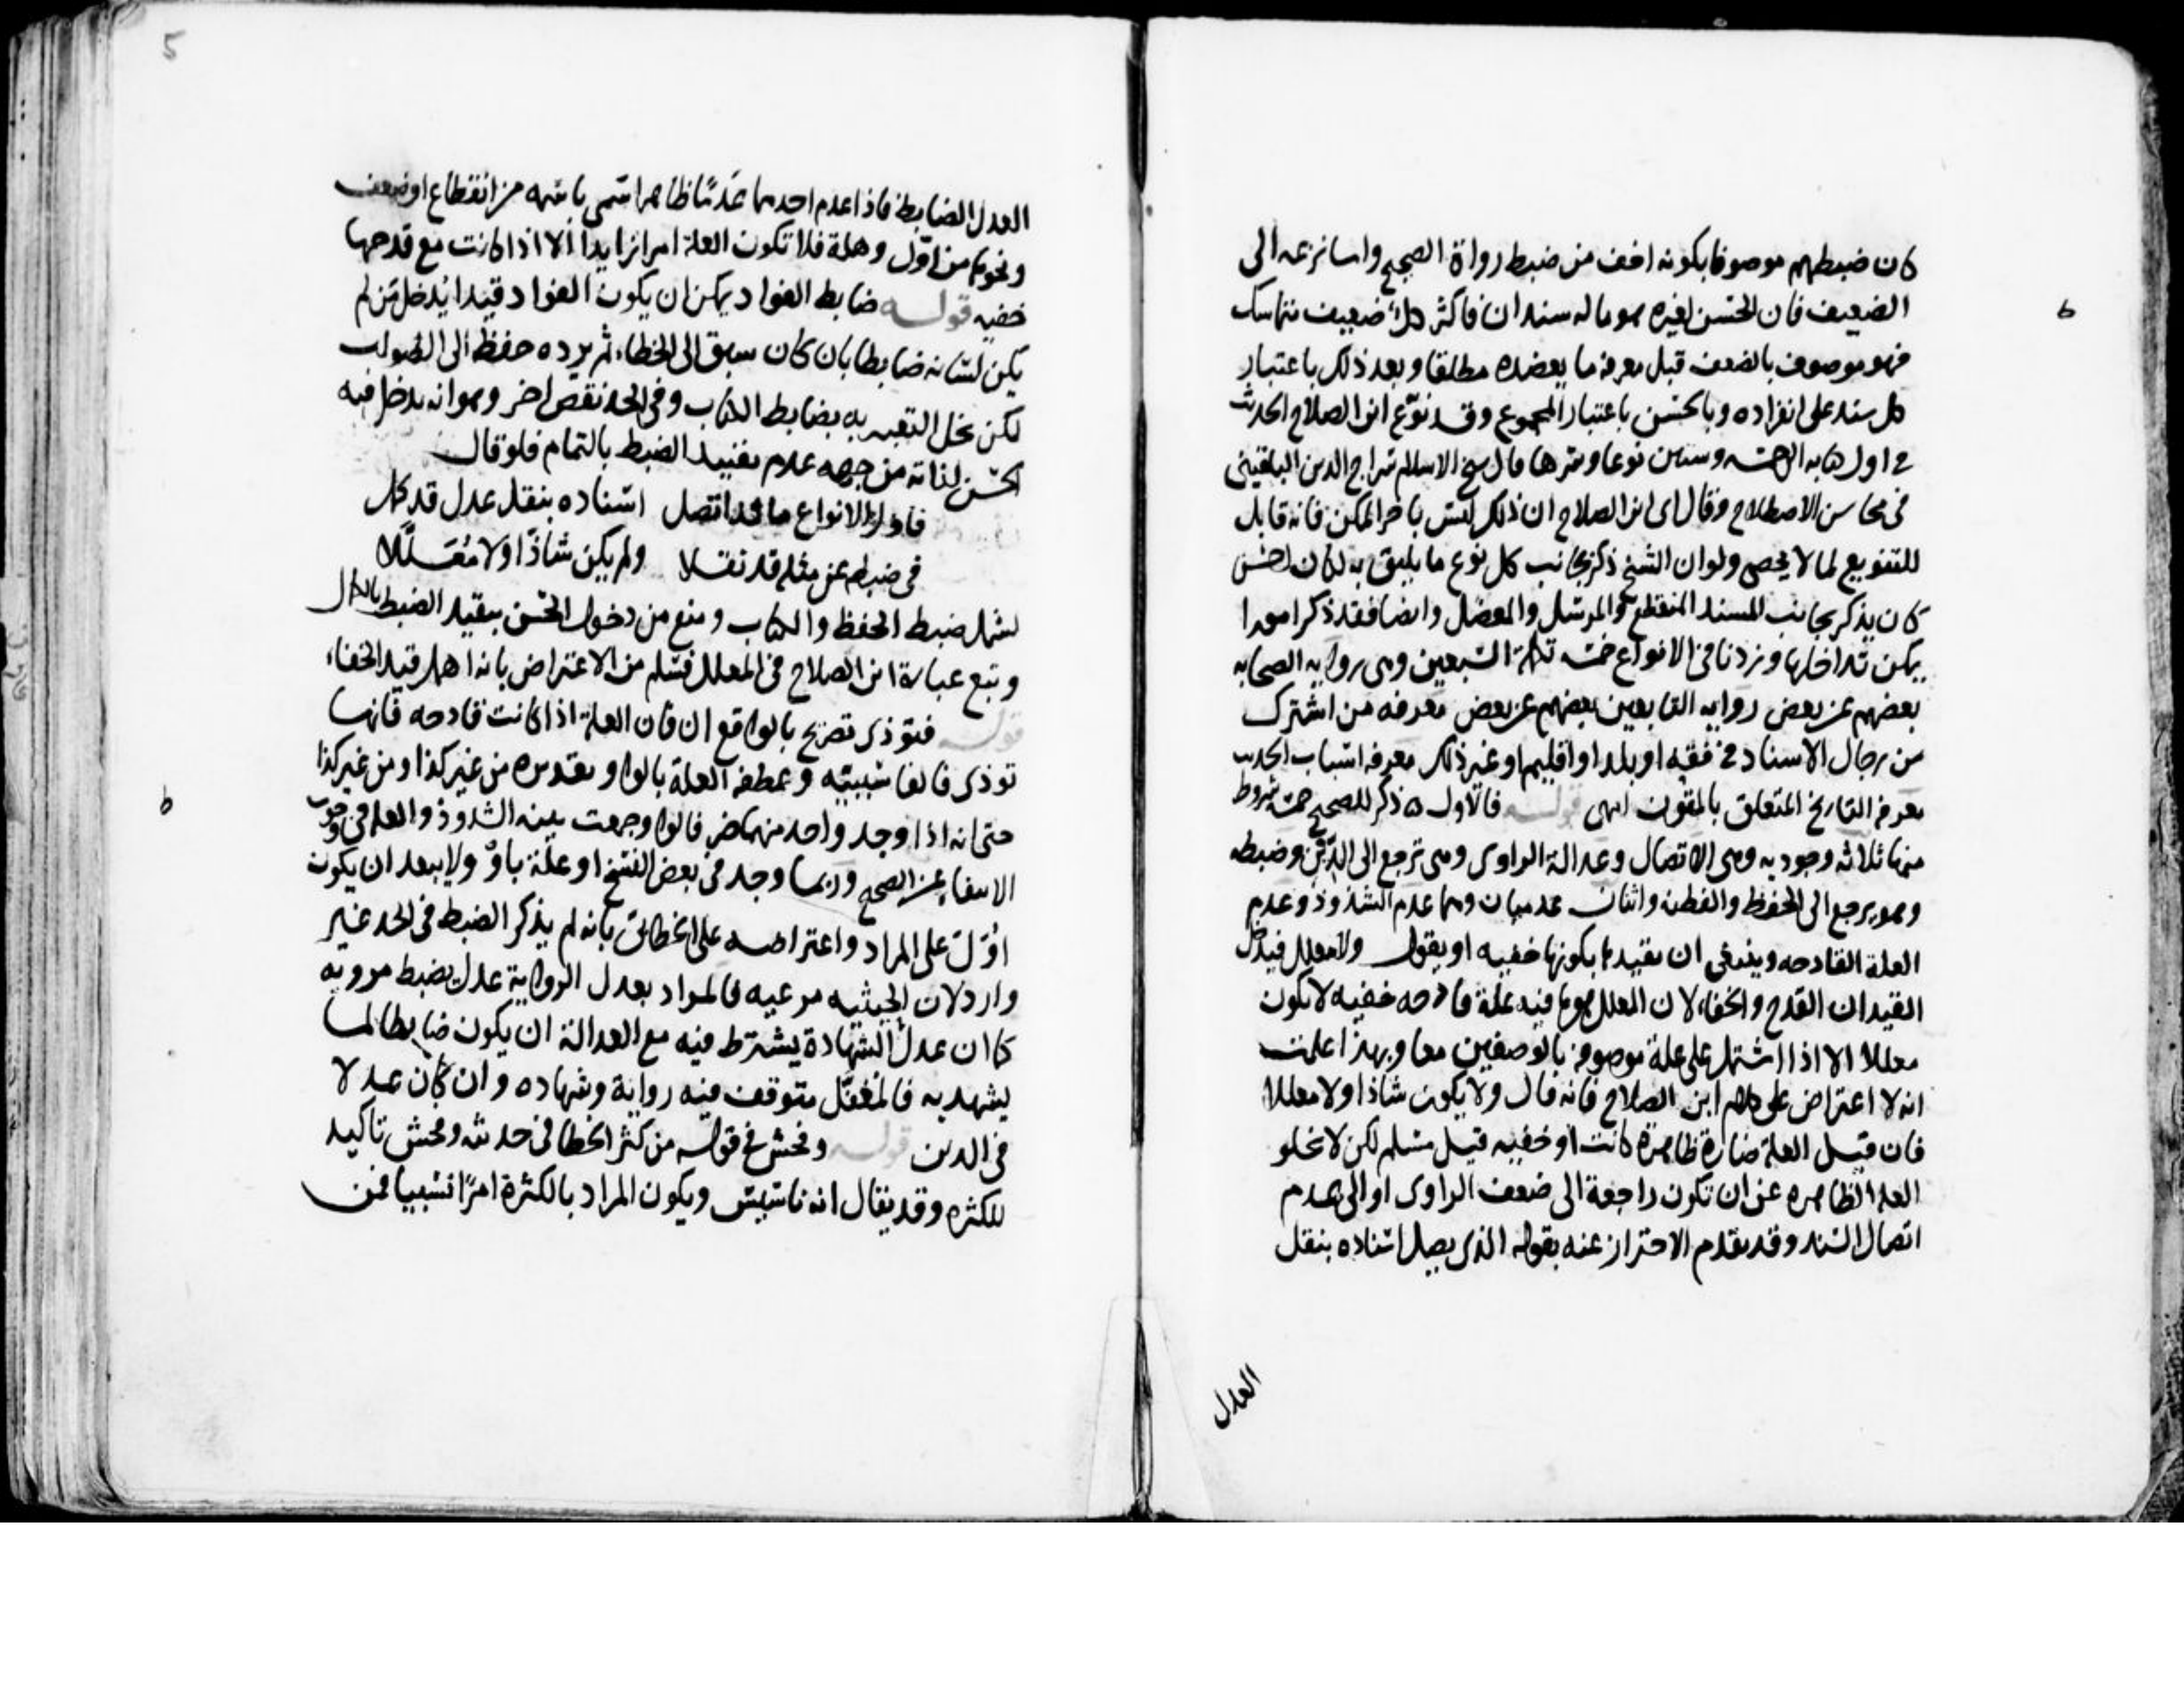 كان ضبطهم موصوفا بكونه اخف من ضبط رواة الصحيح واما نزعه الى
الضعيف فان الحسن لغيره هو ما له سندان فاكثر كل ضعيف متماسك
فهو موصوف بالضعف قبل معرفة ما يعضده مطلقا وبعد ذلك باعتبار
كل سند على انفراده وبالحسن باعتبار المجموع وقد نوع ابن الصلاح الحديث
في اول كتابه الى خمسة وستين نوعا وسردها قال شيخ الاسلام سراج الدين البلقيني
في محاسن الاصطلاح وقال اي ابن الصلاح ان ذلك ليس باخر الممكن فانه قابل
للتنويع لما لا يحصى ولو ان الشيخ ذكر بجانب كل نوع ما يليق به لكان احسن
كان يذكر بجانب المسند المنقطع والمرسل والمعضل وايضا فقد ذكر امورا
يمكن تداخلها وزدنا في الانواع خمسة تكملة السبعين وهي رواية الصحابة
بعضهم عن بعض رواية التابعين بعضهم عن بعض معرفة من اشترك
من رجال الاسناد في فقه او بلد او اقليم او غير ذلك معرفة اسباب الحديث
معرفة التاريخ المتعلق بالمتون انتهى قوله فالاول ذكر للصحيح خمسة شروط
منها ثلاثة وجودية وهي الاتصال وعدالة الراوي وهي ترجع الى الدين وضبطه
وهو يرجع الى الحفظ والفطنة واثنان عدميان وهما عدم الشذوذ وعدم
العلة القادحة وينبغي ان يقيدها بكونها خفية او يقول ولا معلل فيدخل
القيدان القدح والخفاء لان المعلل هو ما فيه علة قادحة خفية لا يكون
معللا الا اذا اشتمل على علة موصوفة بالوصفين معا وبهذا علمت
انه لا اعتراض على كلام ابن الصلاح فانه قال ولا يكون شاذا ولا معللا
فان قيل العلة ضارة ظاهرة كانت او خفية قيل مسلم لكن لا تخلو
العلة الظاهرة عن ان تكون راجعة الى ضعف الراوي او الى عدم
اتصال السند وقد تقدم الاحتراز عنه بقوله الذي يصل اسناده بنقل
العدل
5
العدل الضابط فاذا عدم احدهما عدما ظاهرا سمي باسمه من انقطاع او ضعف
ونحوهما من اول وهلة فلا تكون العلة امرا زايدا الا اذا كانت مع قدحها
خفية قوله ضابط الفواد يمكن ان يكون الفواد قيدا يدخل من لم
يكن لسانه ضابطا بان كان سبق الى الخطاء ثم يرده حفظه الى الصواب
لكن يخل التعبير به بضابط الكتاب وفي الحد نقص اخر وهو انه يدخل فيه
الحسن لذاته من جهة عدم تقييد الضبط بالتمام فلو قال
فاول الانواع ما قد اتصل اسناده بنقل عدل قد كمل
في ضبطه عن مثله قد نقلا ولم يكن شاذا ولا معللا
لشمل ضبط الحفظ والكتاب ومنع من دخول الحسن بتقييد الضبط بالكمال
وتبع عبارة ابن الصلاح في المعلل فسلم من الاعتراض بانه اهمل قيد الخفاء
قوله فتوذي تصريح بالواقع ان فان العلة اذا كانت قادحة فانها
توذي فالفا سببية وعطفه العلة بالواو تقديره من غير كذا ومن غير كذا
حتى انه اذا وجد واحد منهما ضر فالواو جمعت بينه الشذوذ والعلة في وجوب
الانتفاء عن الصحيح وربما وجد في بعض النسخ او علة باو ولا يبعد ان يكون
اول على المراد واعتراضه على الخطابي بانه لم يذكر الضبط في الحد غير
وارد لان الحيثية مرعية فالمراد بعدل الرواية عدل يضبط مرويه
كما ان عدل الشهادة يشترط فيه مع العدالة ان يكون ضابطا لما
يشهد به فالمغفل متوقف فيه رواية وشهادة وان كان عدلا
في الدين قوله وفحش في قوله من كثر الخطا في حديثه وفحش تاكيد
للكثرة وقد يقال انه تاسيس ويكون المراد بالكثرة امرا نسبيا فمن